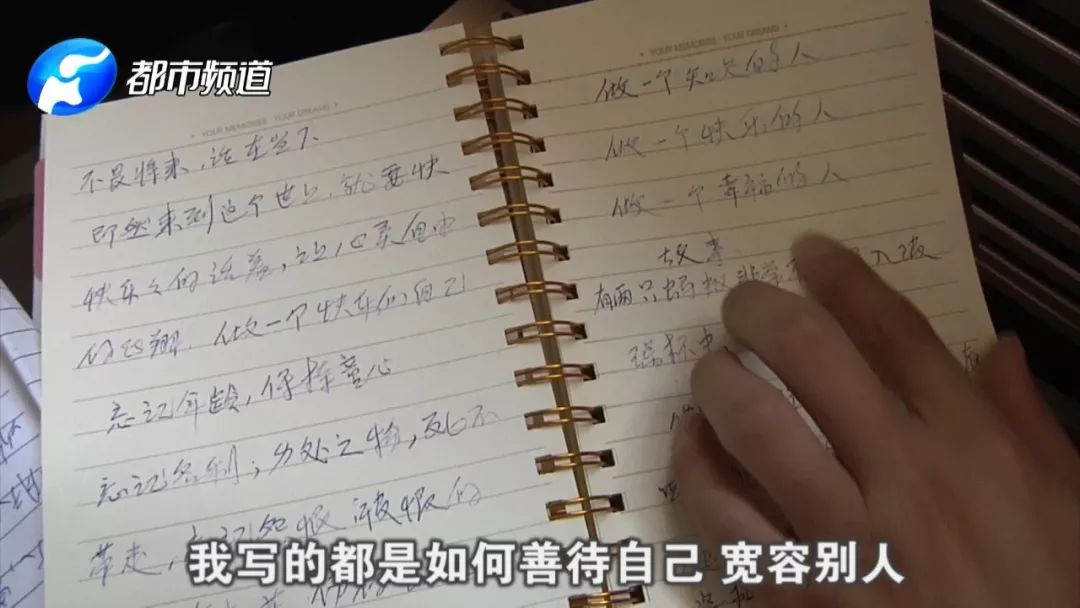 都市频道
YOUR MEMORIES YOUR DREAMS
不畏将来,活在当下
即然来到这个世上,就要快
快乐乐的活着,让心灵自由
的飞翔 做一个快乐的自己
忘记年龄,保持童心
忘记名利,身外之物,死后不
带走,忘记怨恨 被恨的
YOUR MEMORIES YOUR DREAMS
做一个知足的人
做一个快乐的人
做一个幸福的人
故事
有两只蚂蚁非常 入玻
璃杯中
我写的都是如何善待自己 宽容别人